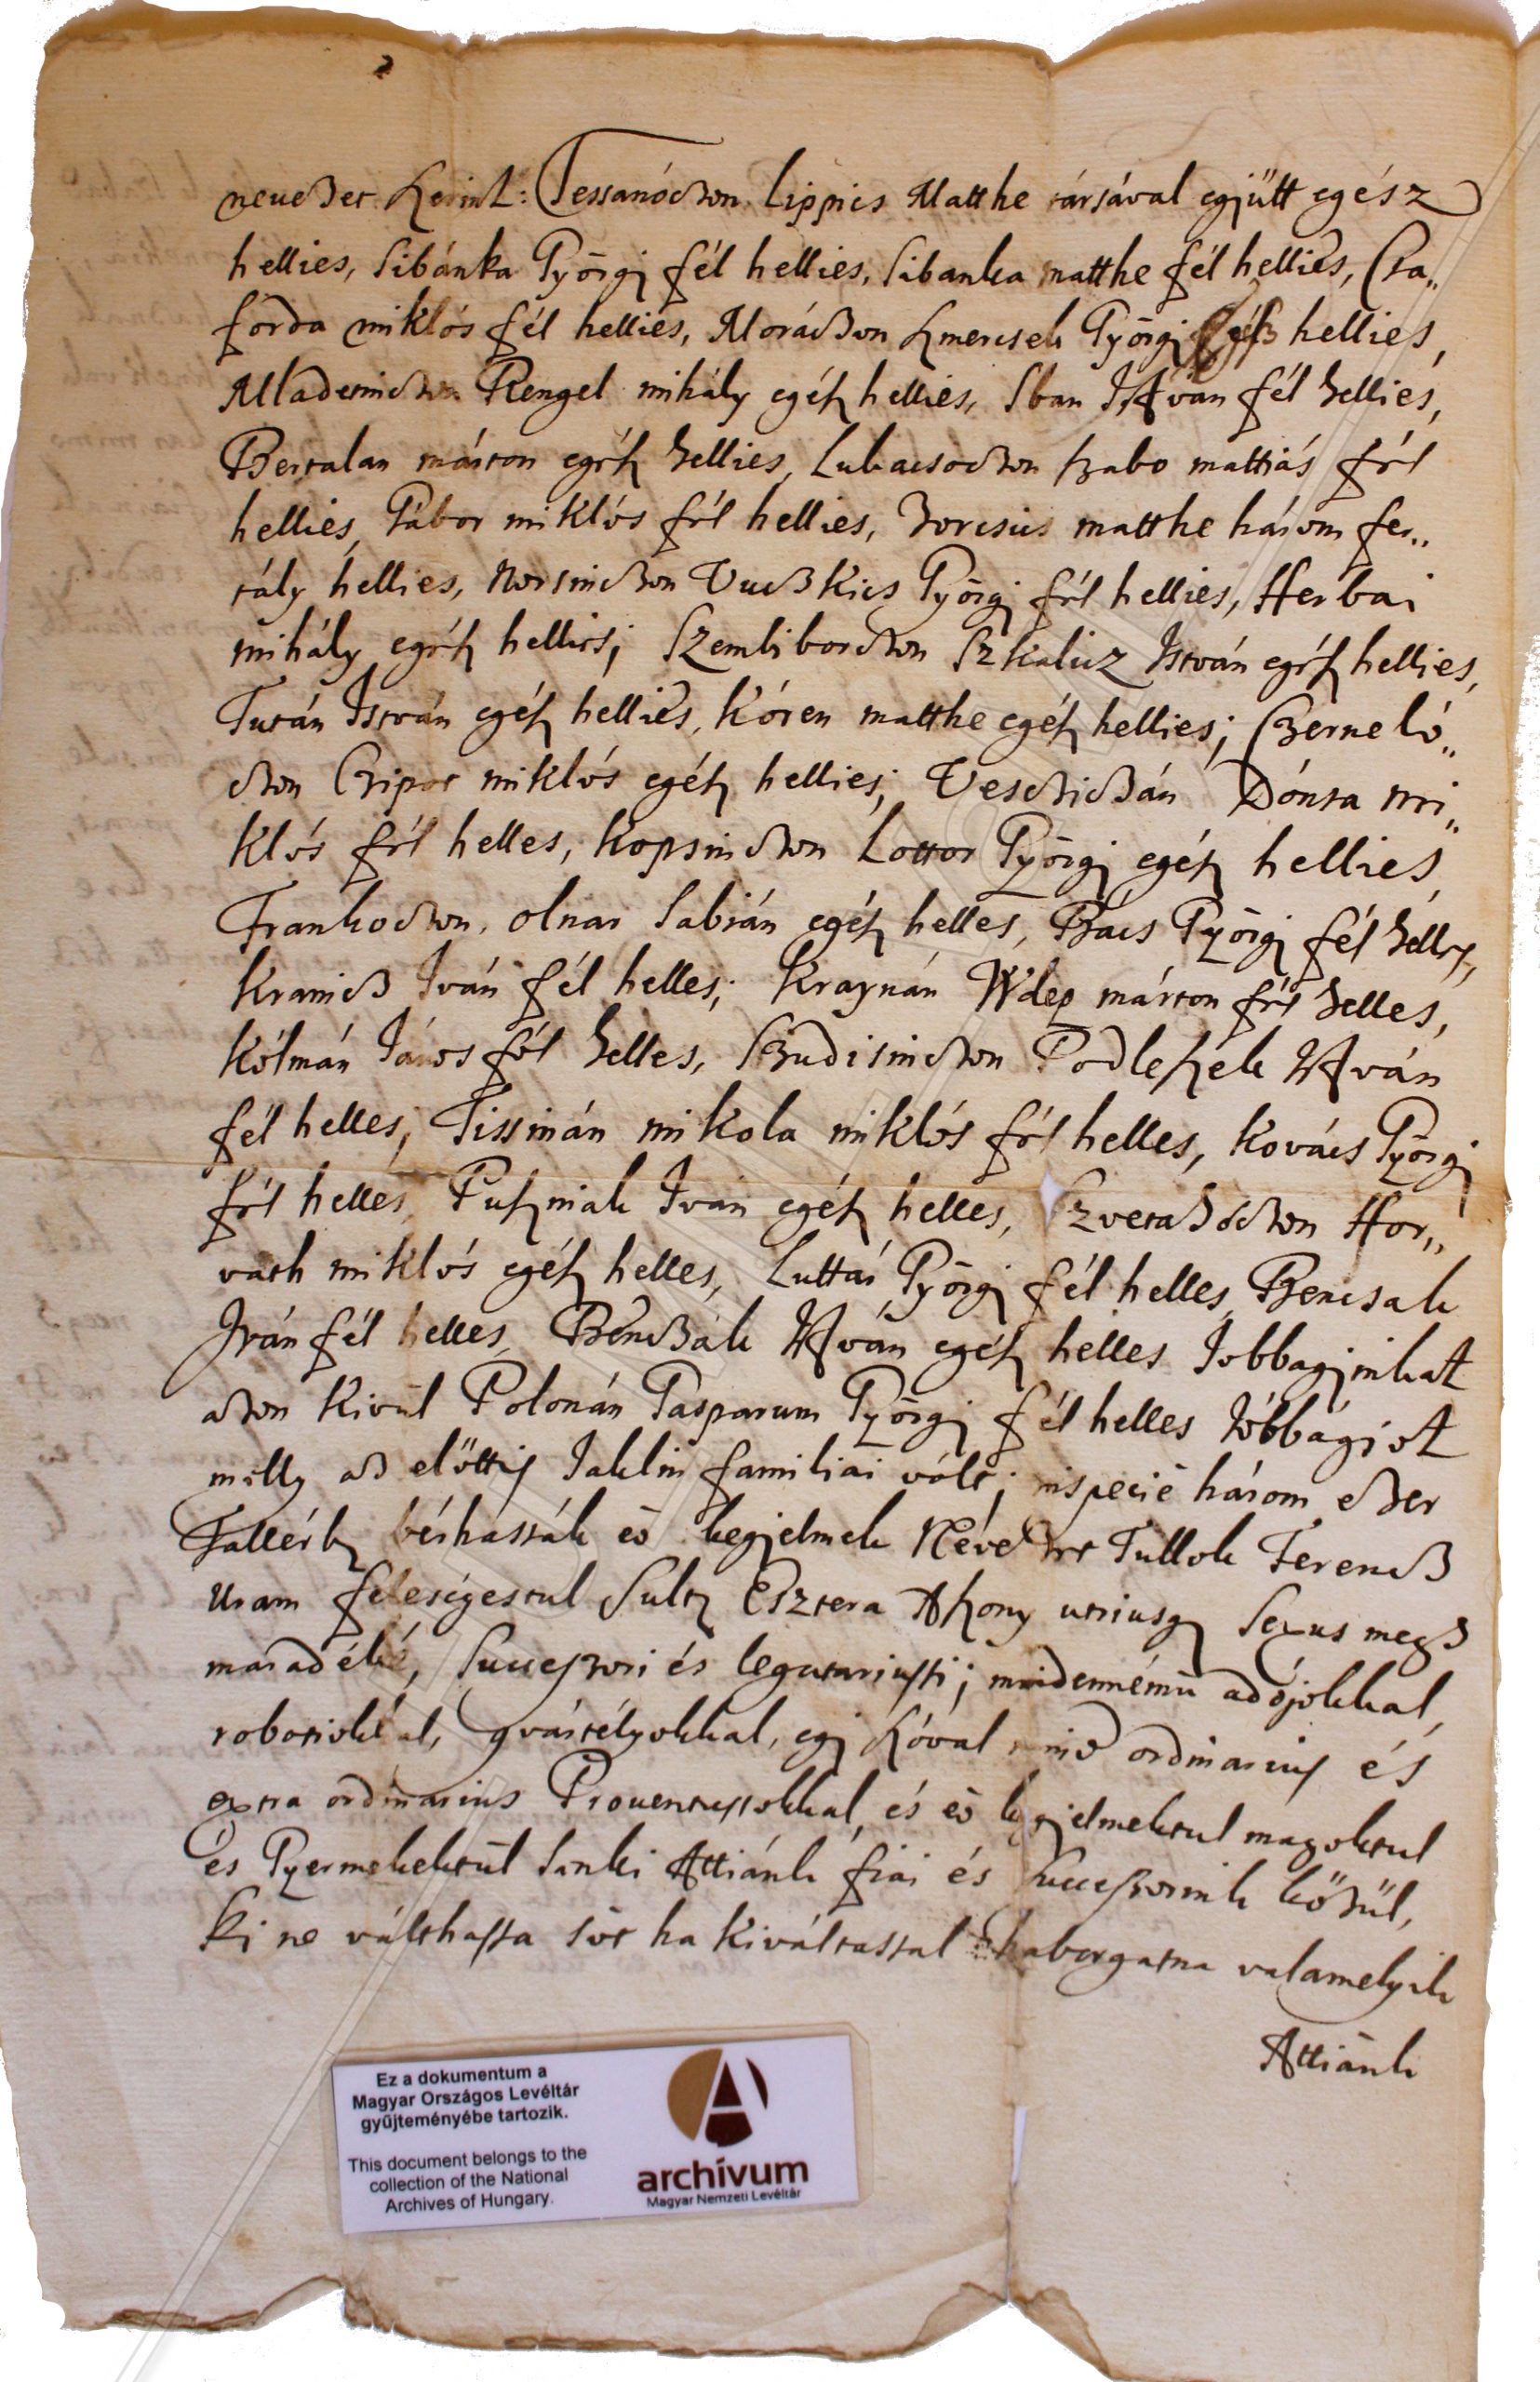 nevezet szerint: Tessanóczon Lippics Matthe társával együtt egész
hellies, Sibánka Győrgj fél hellies, Sibanka matthe fél hellies, Cza„
forda miklós fél hellies, Moráczon Györgj hellies,
Mladetinczon Rengel mihály egész hellies, Sban István fél hellies,
Bertalan márton egész hellies, Lukacsoczon szabo mattiás fél
hellies, Gábor miklós fél hellies, matthe három fer„
tály hellies, Norsinczon Vuczkics Győrgj fél hellies, Herbai
mihály egész hellies; Szembiborczon Szkalicz István egész hellies,
Turán István egész hellies, Kóren matthe egész hellies; Czerneló„
czon Czipot miklós egész hellies; Vescziczán Dónta mi„
klós fél helles, kopsinczon Lottor Győrgj egész hellies,
Frankoczon, olnar Sabián egész helles, Bács Győrgj fél helles,
Kranicz Iván fél helles; Kraynán márton fél helles,
Kólmán János fél helles, Budisinczon Podleszek István
fél helles; Tissinán mikola miklós fél helles, Kovács Győrgj
fél helles, Puszniak Iván egész helles, Szvetahóczon Hor„
vath miklós egész helles, Luttár Győrgj fél helles, Bencsak
Iván fél helles, Benczák István egész helles Jobbagjinkat
azon kivűl Polonán Gasparum Győrgj fél helles Jóbbágiot
melly az előttis Jaklin familiai vólt; inspecie három ezer
Tallérb, bérhassák eő kegjelmek Nevezet Tullok Ferencz
Uram feleségestul Sultz Esztera Aszony utriusq Sexus megh
maradéki, Successori és legatariussi; mindennémű adójokkal,
robotiokkal, qvártélyokkal, egj szóval mind ordinarius és
extra ordinarius Proventussokkal, és eő kegjelmektul magoktul
és Gyermekektűl Senki Attiánk fiai és Successorink kőzűl,
ki ne válthassa sőt ha kiváltassal haborgatna valamelyik
Attiánk
Ez a dokumentum a
Magyar Országos Levéltár
gyűjteményébe tartozik.
This document belongs to the
collection of the National
Archives of Hungary.
archívum
Magyar Nemzeti Levéltár